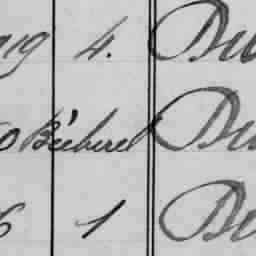 19 4. Du
0 Bécherel Du
6 1 Du